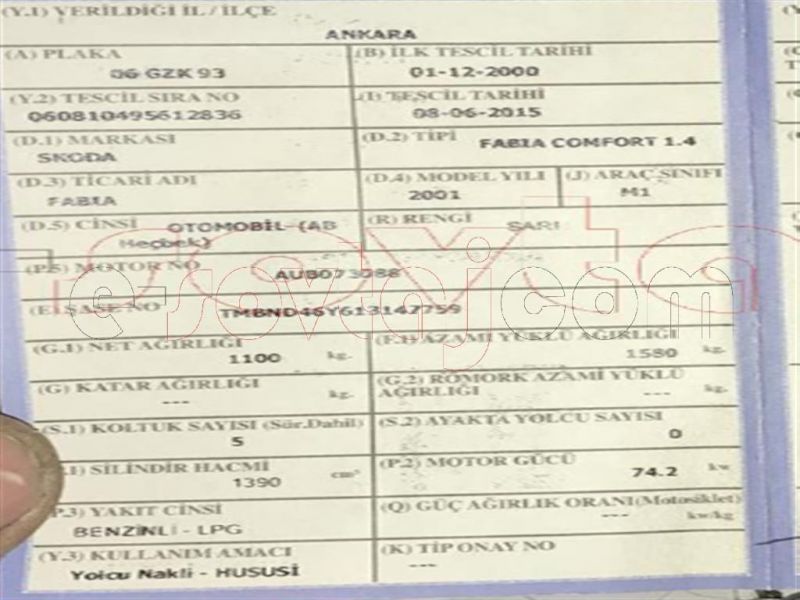 (Y.1) VERİLDİĞİ İL / İLÇE
ANKARA
(A) PLAKA
06 GZK 93
(B) İLK TESCİL TARİHİ
01-12-2000
(Y.2) TESCİL SIRA NO
060810495612836
(I) TESCİL TARİHİ
08-06-2015
(D.1) MARKASI
SKODA
(D.2) TİPİ
FABIA COMFORT 1.4
(D.3) TİCARİ ADI
FABIA
(D.4) MODEL YILI
2001
(J) ARAÇ SINIFI
M1
(D.5) CİNSİ
OTOMOBİL-(AB
Heçbek)
(R) RENGİ
SARI
(P.5) MOTOR NO
AUB073088
e-sovtaj.com
(E) ŞASE NO
(G.1) NET AĞIRLIĞI
1100 kg.
(F.1) AZAMİ YÜKLÜ AĞIRLIĞI
1580 kg.
(G) KATAR AĞIRLIĞI
--- kg.
(G.2) RÖMORK AZAMİ YÜKLÜ
AĞIRLIĞI
--- kg.
(S.1) KOLTUK SAYISI (Sür.Dahil)
5
(S.2) AYAKTA YOLCU SAYISI
0
SİLİNDİR HACMİ
1390 cm³
(P.2) MOTOR GÜCÜ
74.2 kw
P.3) YAKIT CİNSİ
BENZİNLİ - LPG
(Q) GÜÇ AĞIRLIK ORANI(Motosiklet)
--- kw/kg
(Y.3) KULLANIM AMACI
Yolcu Nakli - HUSUSİ
(K) TİP ONAY NO
---